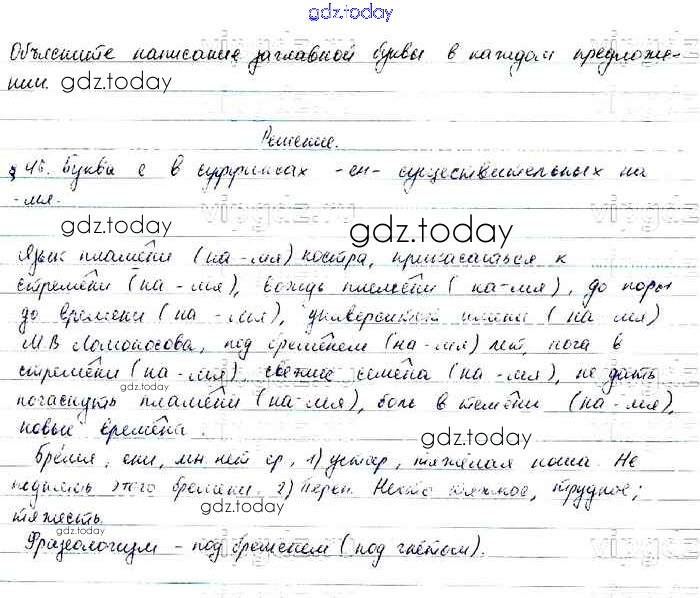 gdz.today
Объясните написание заглавной буквы в каждом предложе-
нии. gdz.today
Решение.
§ 46. Буква е в суффиксах -ен- существительных на
-мя.
gdz.today
gdz.today
Язык пламени (на -мя) костра, прикасаться к
стремени (на -мя), вождь племени (на-мя), до поры
до времени (на -мя), университет имени (на -мя)
М В Ломоносова, под бременем (на-мя) лет, нога в
стремени (на -мя), свежие семена (на -мя), не дать
gdz.today
погаснуть пламени (на-мя), боль в темени (на -мя),
новые времена.
gdz.today
Бремя, ени, мн. нет ср, 1) устар, тяжёлая ноша. Не
подымешь этого бремени. 2) Перен. Нечто тяжкое, трудное;
тяжесть.
gdz.today
Фразеологизм - под бременем (под гнётом).
gdz.today